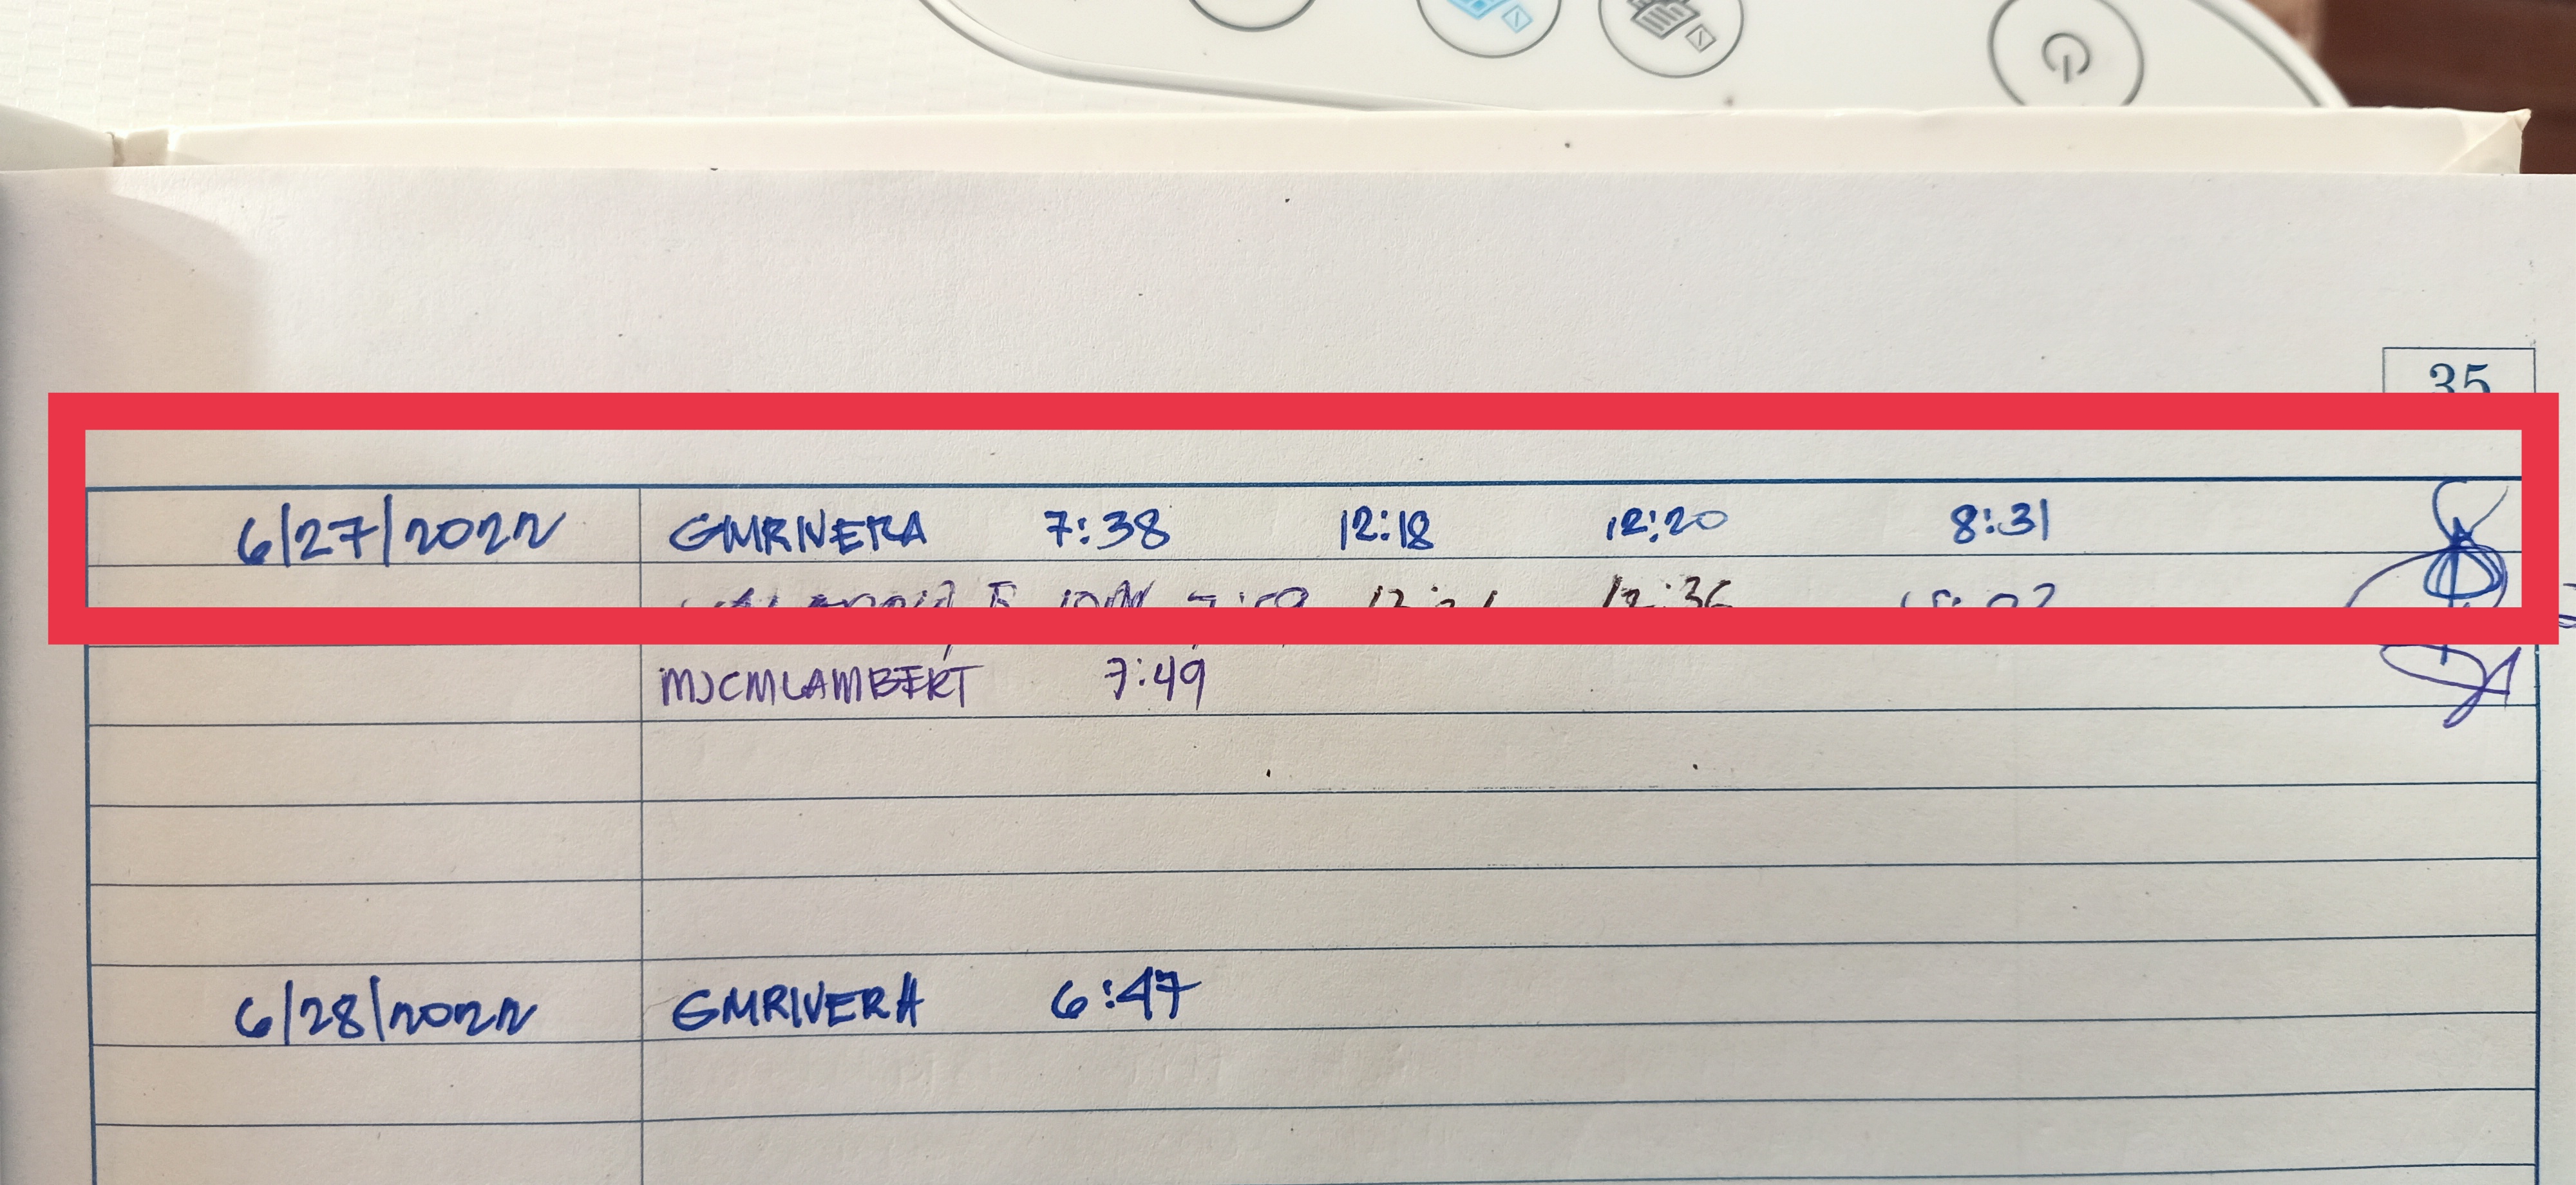 35
6/27/2022 GMRIVERA 7:38 12:18 12:20 8:31
12:36
MJCMLAMBERT 7:49
6/28/2022 GMRIVERA 6:47